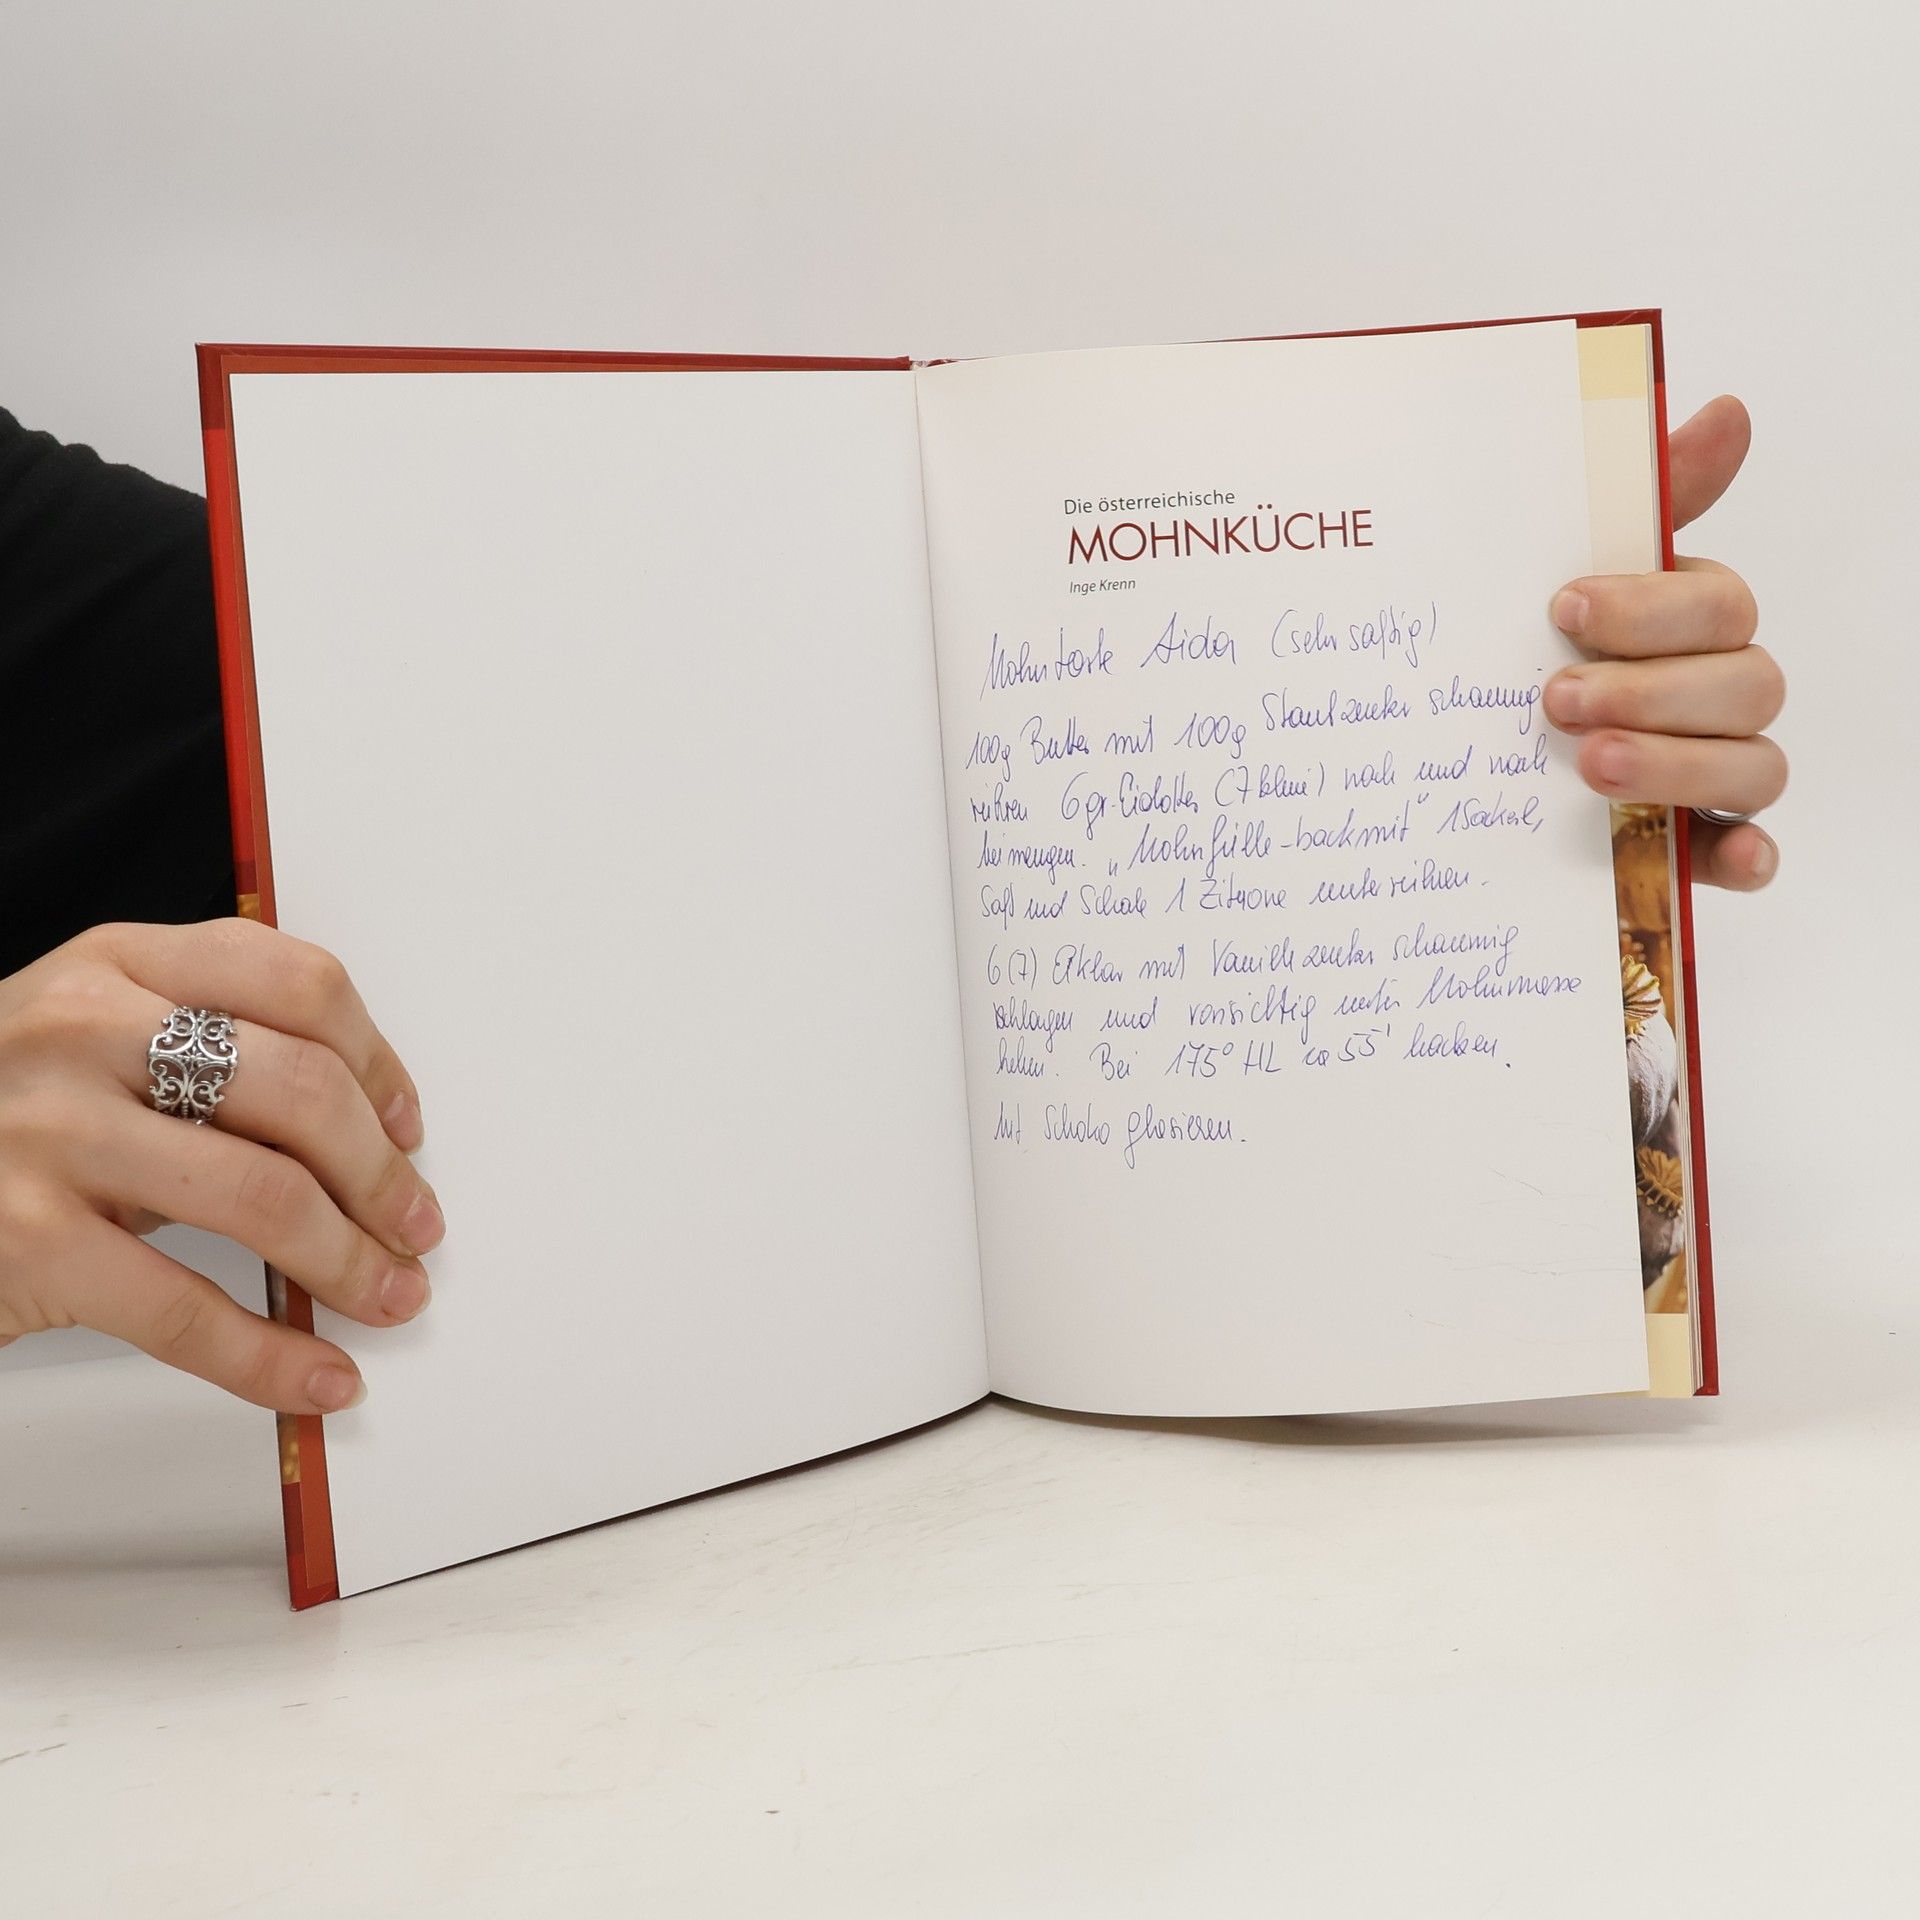 Die österreichische
MOHNKÜCHE
Inge Krenn
Mohntorte Aida (sehr saftig)
100g Butter mit 100g Staubzucker schaumig
rühren 6 gr. Eidotter (7 kleine) nach und nach
beimengen. „Mohnfülle-backmit" 1 Sackerl,
Saft und Schale 1 Zitrone unterrühren.
6 (7) Eiklar mit Vanillezucker schaumig
schlagen und vorsichtig unter Mohnmasse
heben. Bei 175° HL ca 55' backen.
Mit Schoko glasieren.